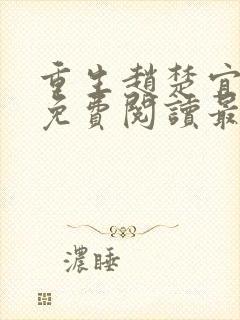 重生趙楚宜
免費閱讀最
濃睡